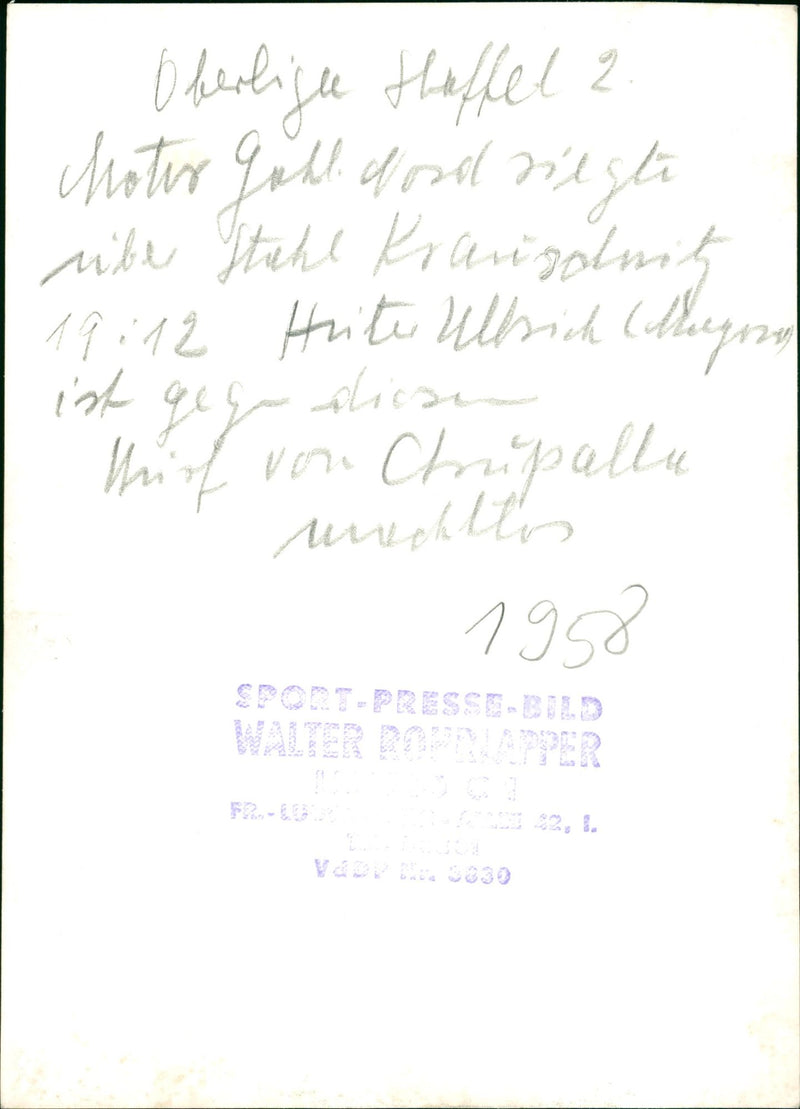 Oberliga Staffel 2.
Motor Gohl. Nord siegte
über Stahl Krauschwitz
19:12 Hüter Ullrich
ist gegen diesen
Wurf von Chrupalla
machtlos
1958
SPORT-PRESSE-BILD
WALTER ROHRLAPPER
C 1
FR.-LUDW ALLEE 42, I.
VdDP Nr. 3630